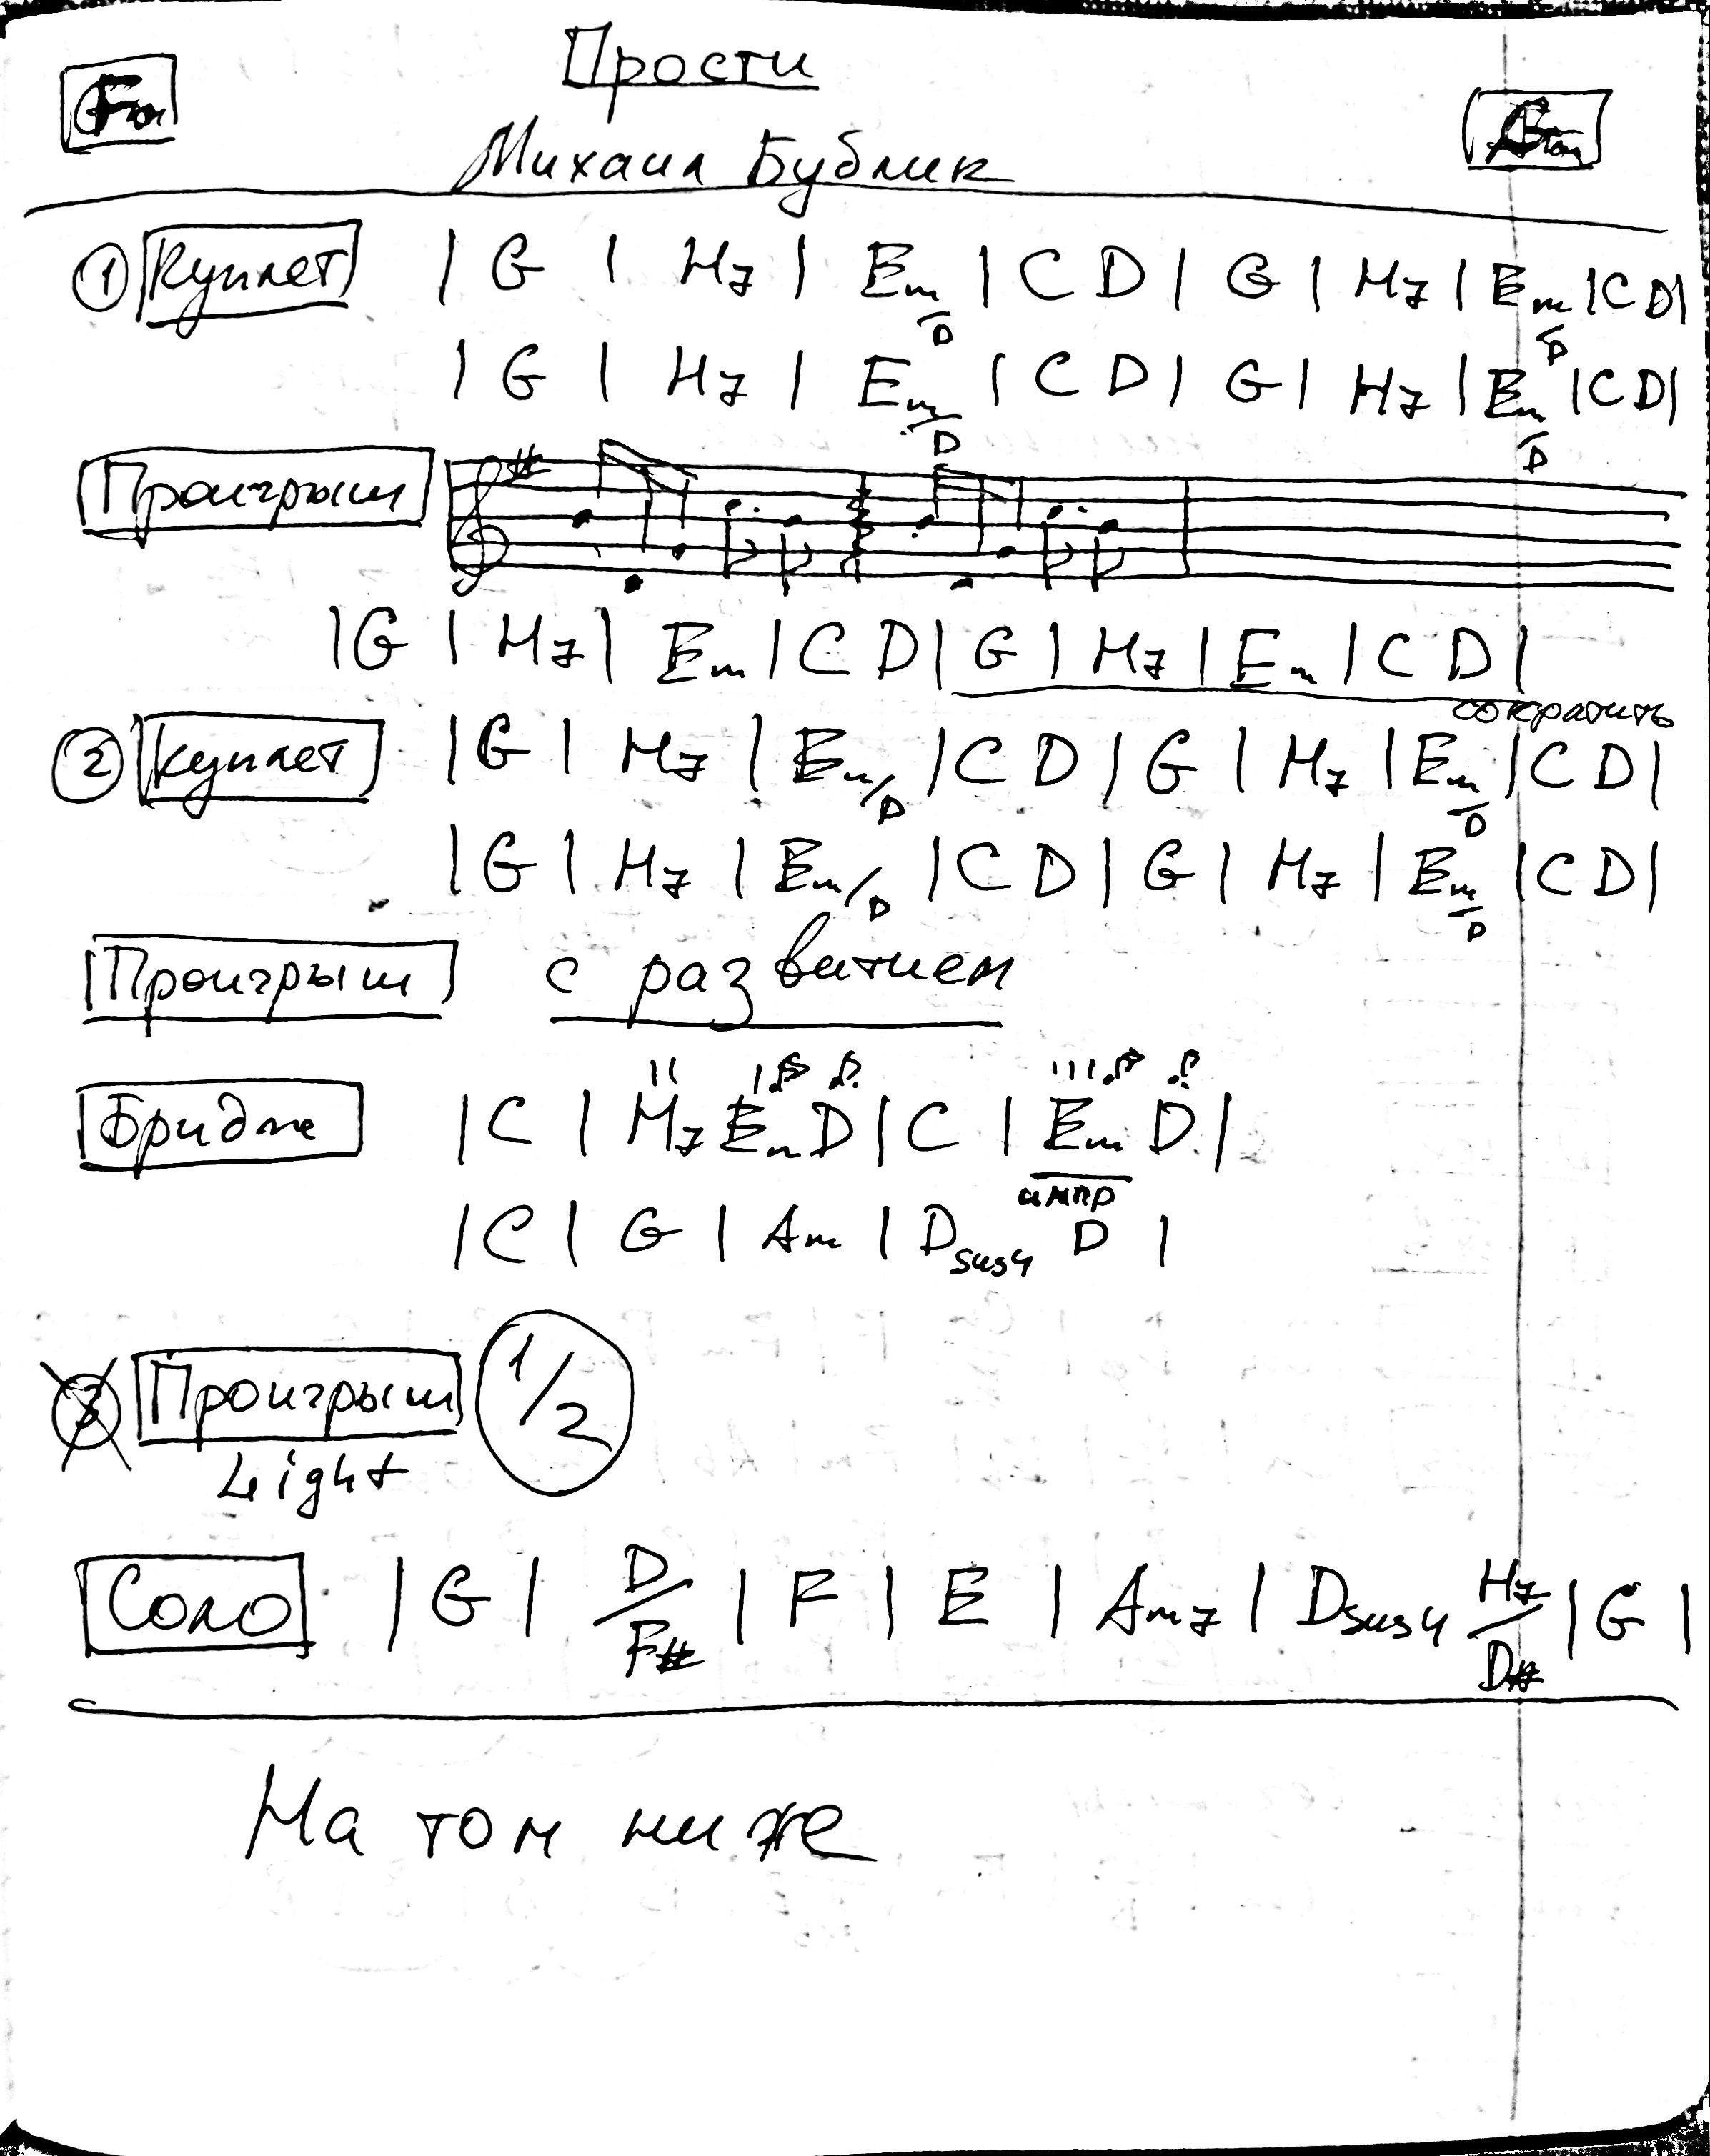 Прости
Михаил Бублик
1 Куплет | G | H7 | Em/D | C D | G | H7 | Em/D | C D |
| G | H7 | Em/D | C D | G | H7 | Em/D | C D |
Проигрыш
| G | H7 | Em | C D | G | H7 | Em | C D |
сократить
2 Куплет | G | H7 | Em/D | C D | G | H7 | Em/D | C D |
| G | H7 | Em/D | C D | G | H7 | Em/D | C D |
Проигрыш с развитием
Бридж | C | H7 Em D | C | Em D |
импр
| C | G | Am | Dsus4 D |
3 Проигрыш 1/2
Light
Соло | G | D/F# | F | E | Am7 | Dsus4 H7/D# | G |
На тон ниже